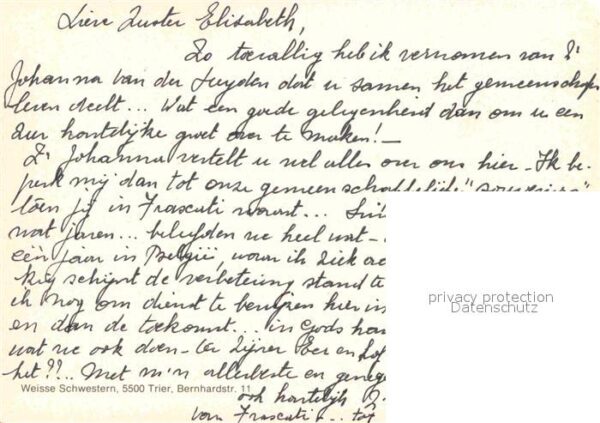 Lieve Zuster Elisabeth,
Zo toevallig heb ik vernomen van Zr
Johanna van der Luyden dat u samen het gemeenschaps
leven deelt... Wat een goede gelegenheid dan om u een
zeer hartelijke groet over te maken! -
Zr Johanna vertelt u wel alles over ons hier - Ik be-
perk mij dan tot onze gemeenschappelijke "souvenirs"
toen jij in Frascati waart...
wat jaren... beleefden we heel wat -
één jaar in België, waar ik ziek
schijnt de verbetering stand te
ik nog om dienst te bewijzen hier in
en dan de toekomst... in Gods
wat we ook doen - ter Zijner Eer en Lof
het??.. Met m'n allerbeste en
Weisse Schwestern, 5500 Trier, Bernhardstr. 11
ook hartelijk
van Frascati... tot
privacy protection
Datenschutz